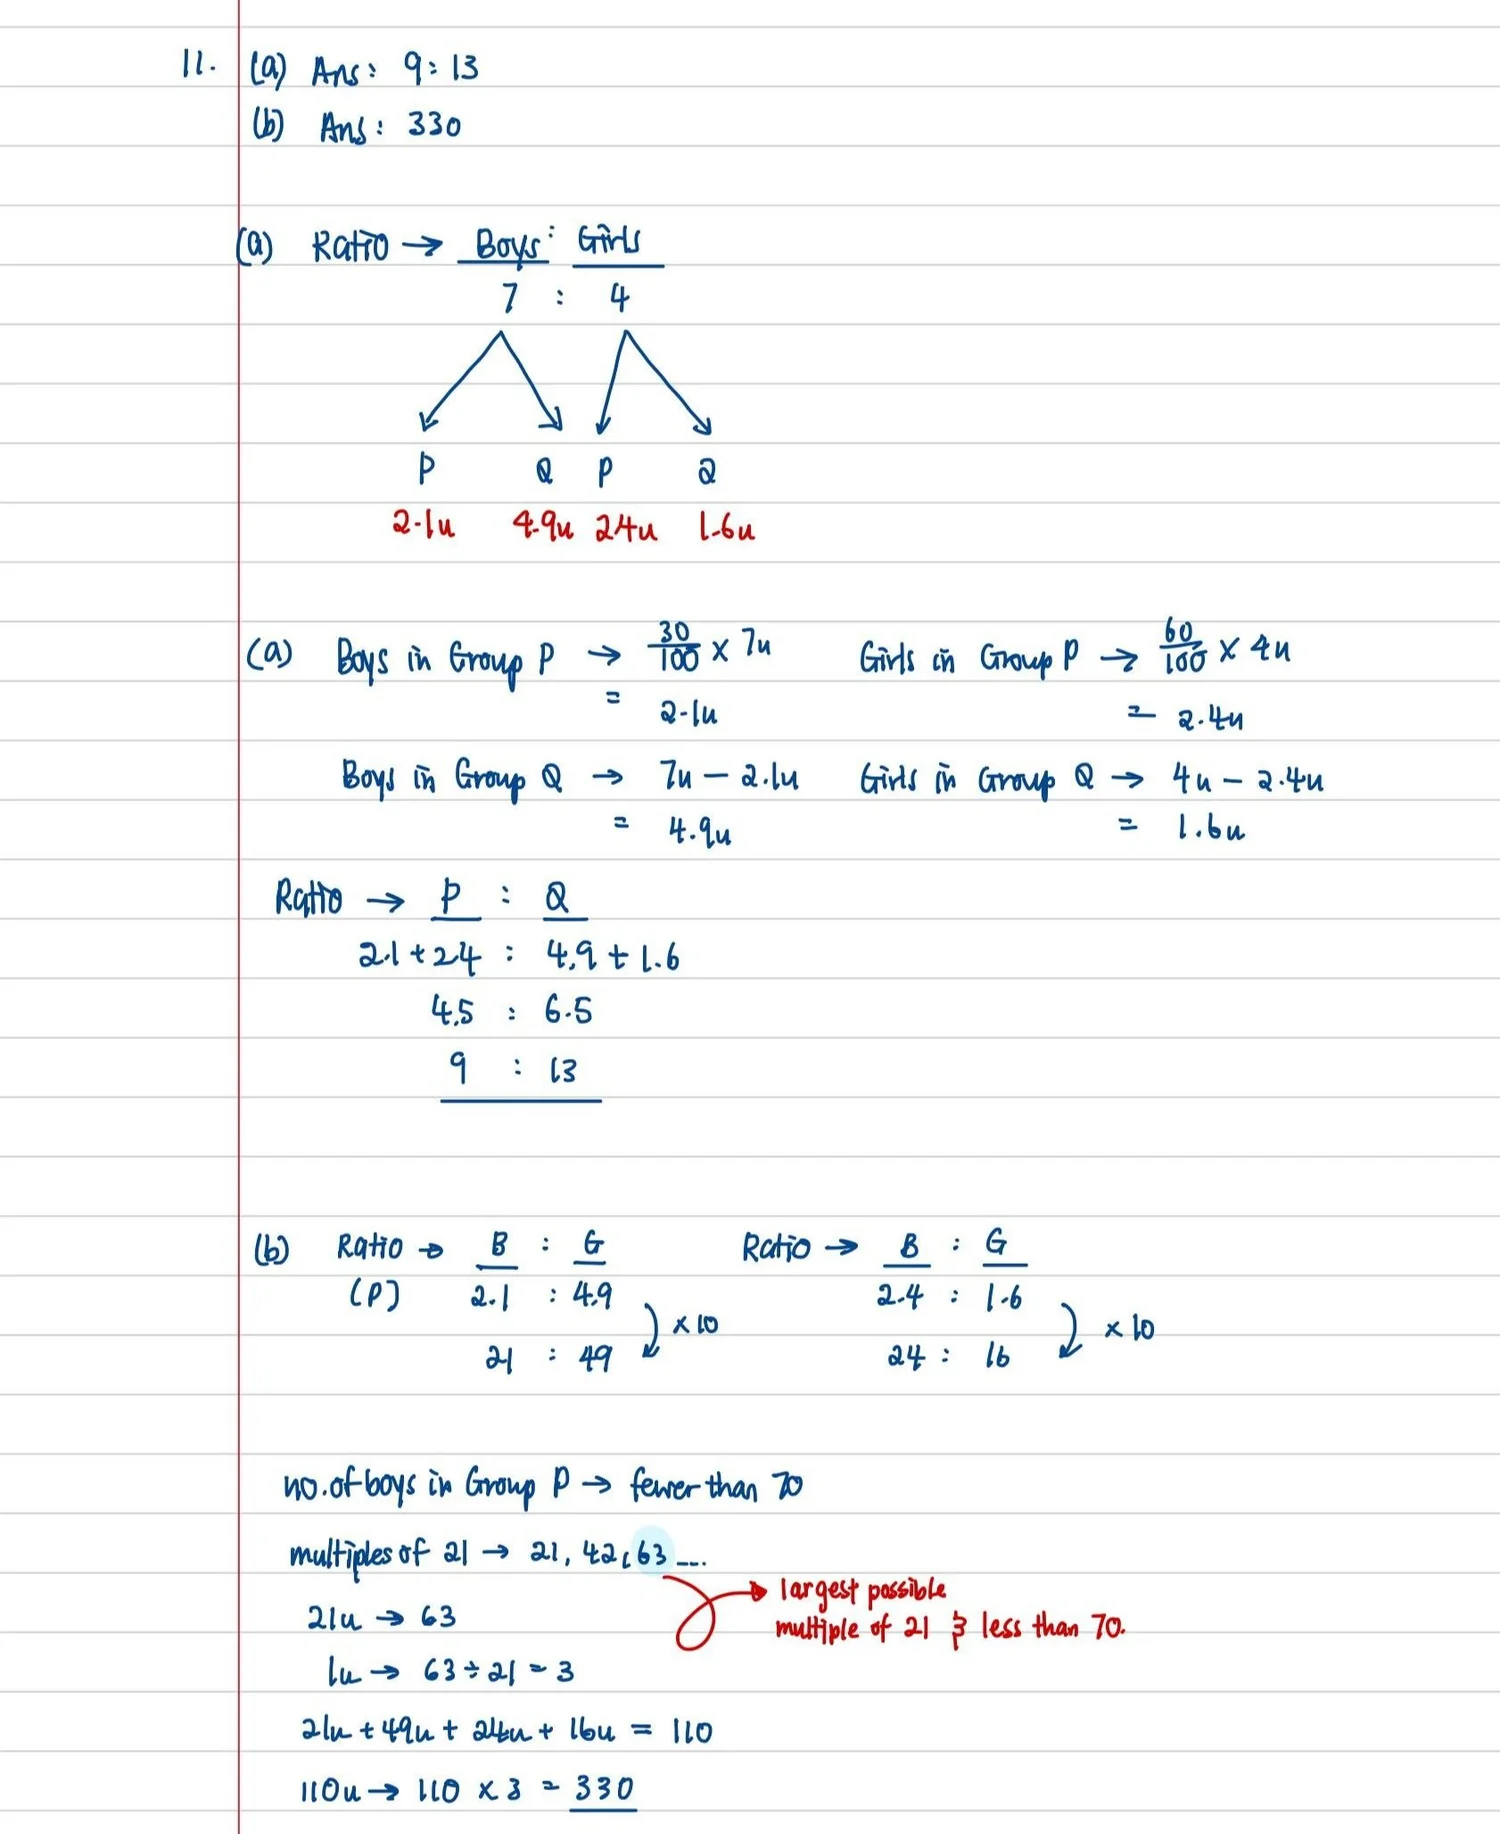 11. (a) Ans: 9:13
(b) Ans: 330
(a) Ratio → Boys : Girls
7 : 4
P Q P Q
2.1u 4.9u 2.4u 1.6u
(a) Boys in Group P → 30/100 × 7u Girls in Group P → 60/100 × 4u
= 2.1u = 2.4u
Boys in Group Q → 7u - 2.1u Girls in Group Q → 4u - 2.4u
= 4.9u = 1.6u
Ratio → P : Q
2.1 + 2.4 : 4.9 + 1.6
4.5 : 6.5
9 : 13
(b) Ratio → B : G Ratio → B : G
(P) 2.1 : 4.9 2.4 : 1.6
× 10 × 10
21 : 49 24 : 16
no. of boys in Group P → fewer than 70
multiples of 21 → 21, 42, 63 ....
largest possible
multiple of 21 & less than 70.
21u → 63
1u → 63 ÷ 21 = 3
21u + 49u + 24u + 16u = 110
110u → 110 × 3 = 330